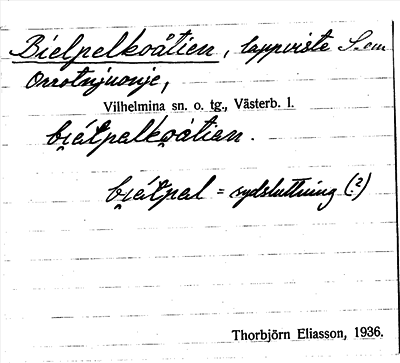 Bielpelkoåtien, lappviste S. om
Orrotnjuonje,
Vilhelmina sn. o. tg., Västerb. l.
b̭iέtpalko̭åtian.
b̭iέtpal = sydsluttning (?)
Thorbjörn Eliasson, 1936.